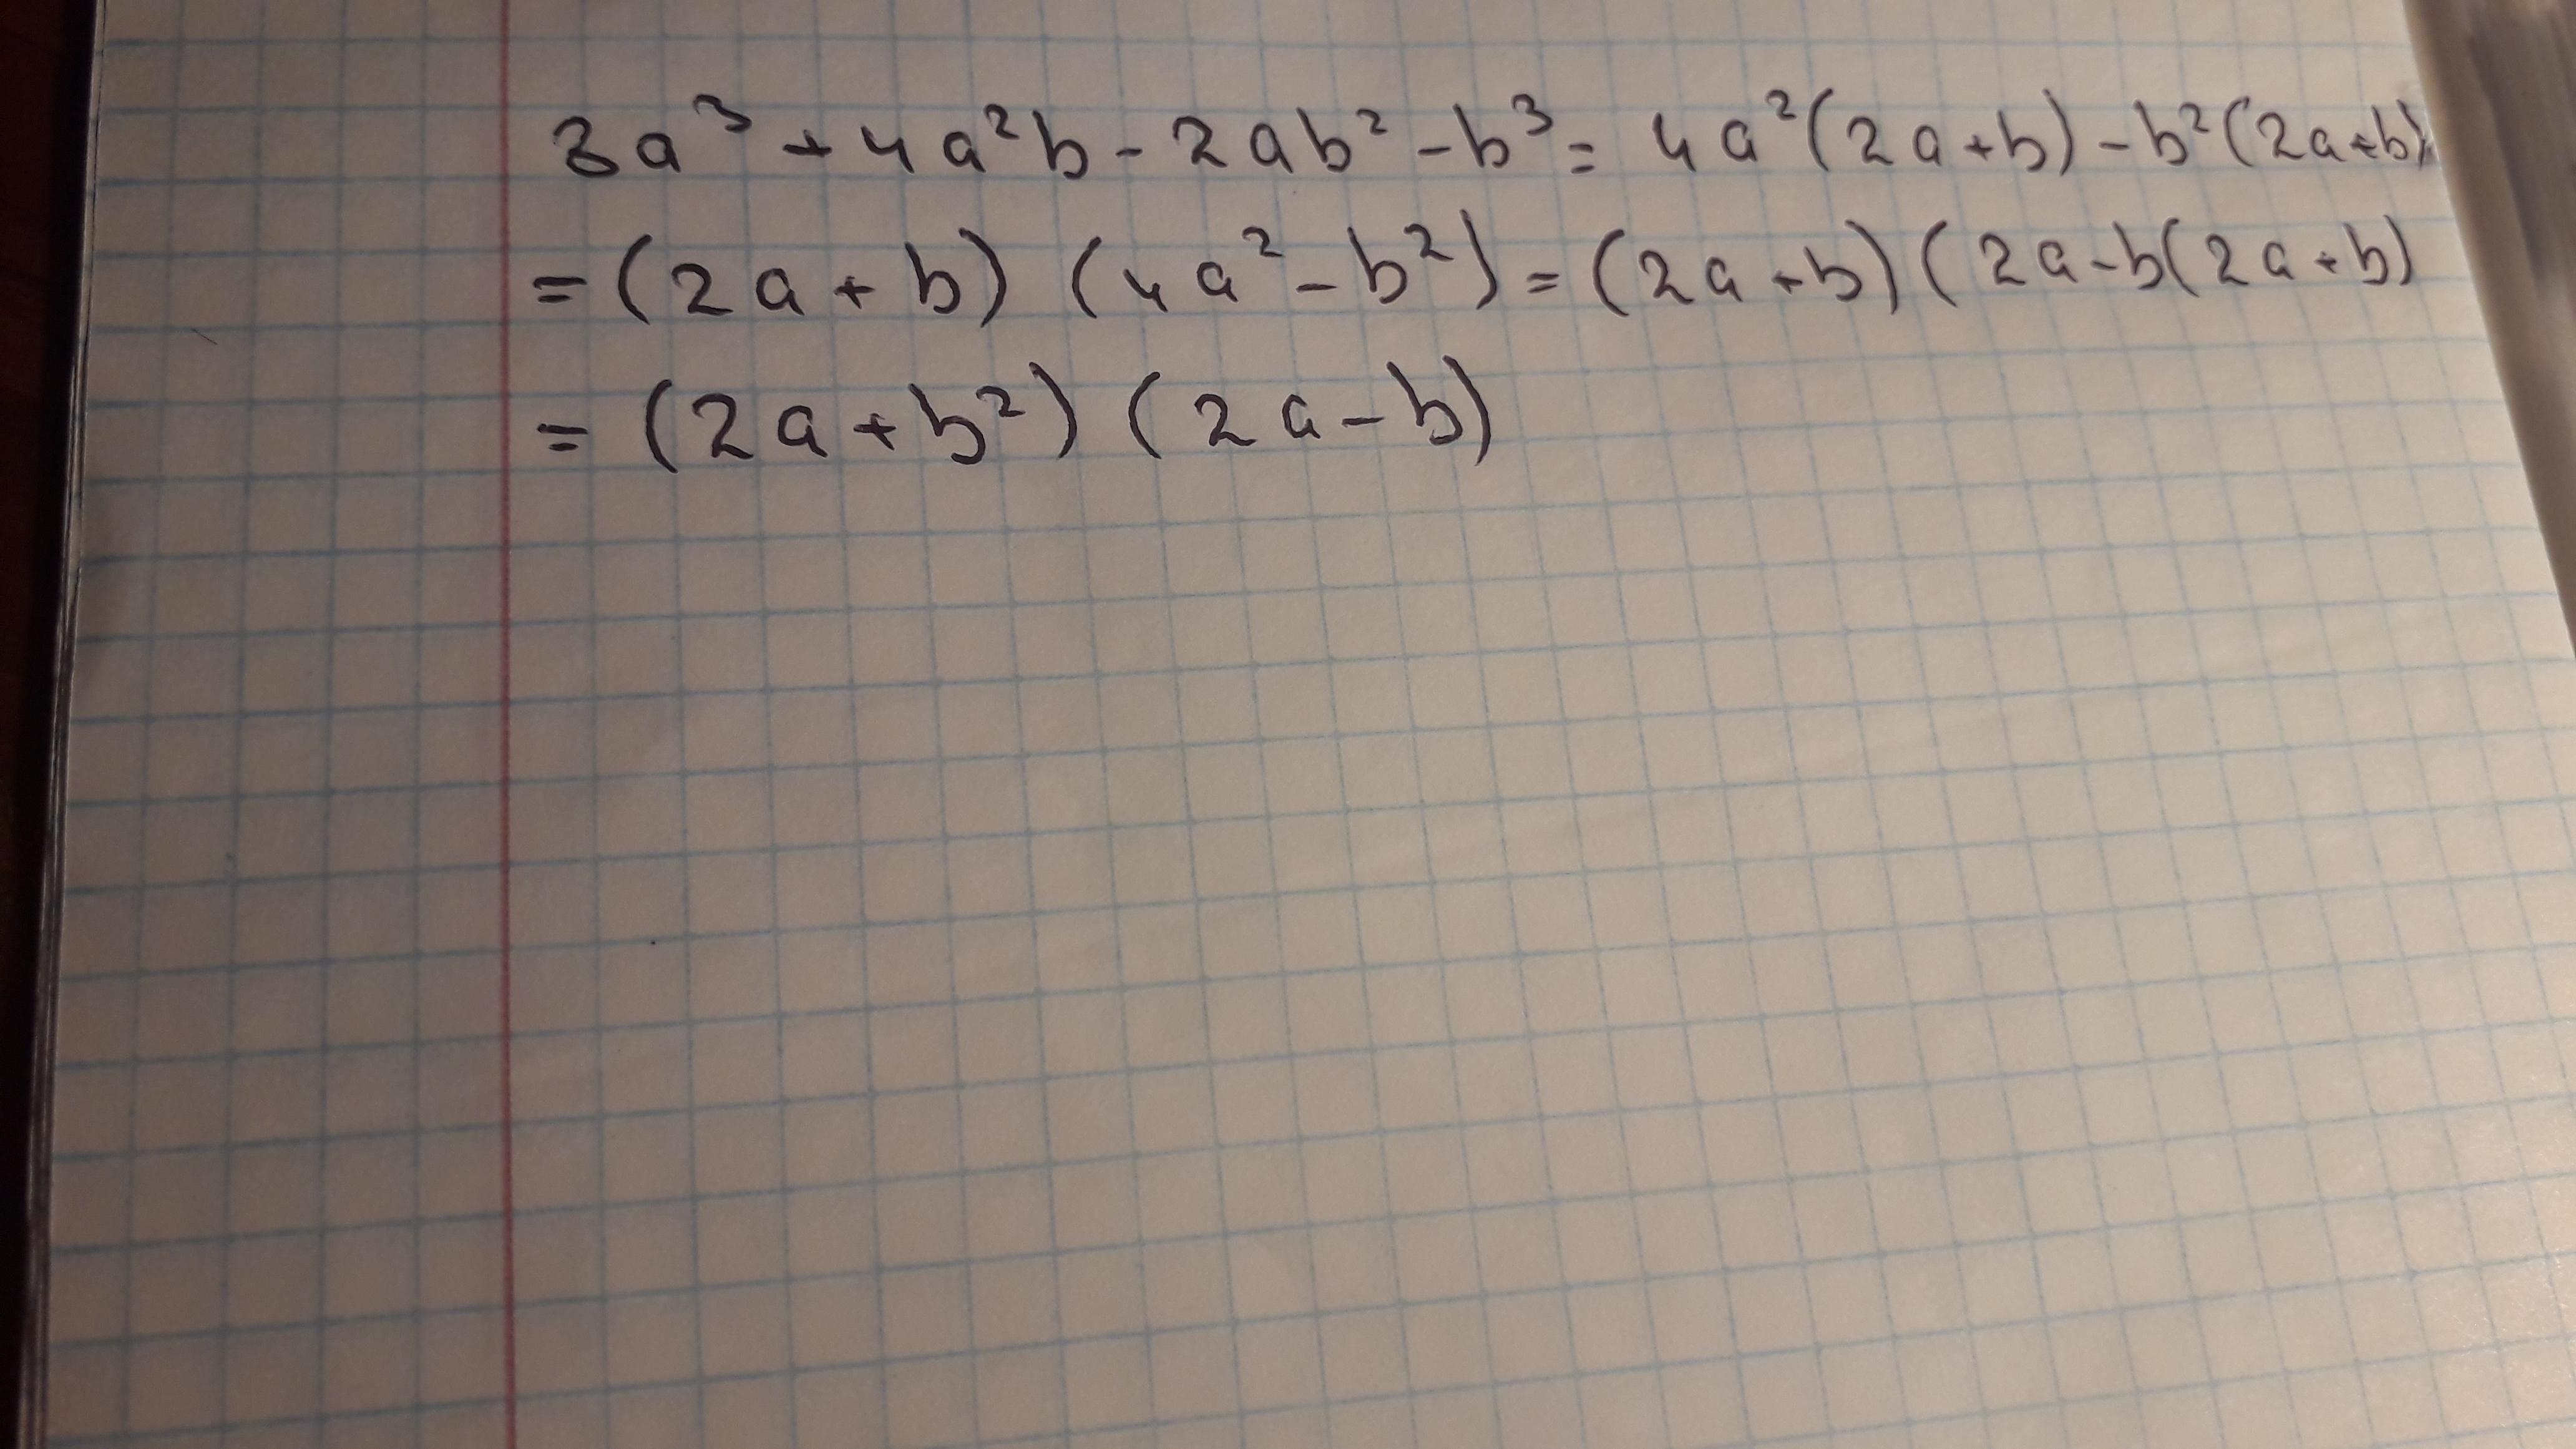 8a³ + 4a²b - 2ab² - b³ = 4a²(2a+b) - b²(2a+b)
= (2a + b) (4a² - b²) = (2a + b) (2a - b(2a + b)
= (2a + b²) (2a - b)